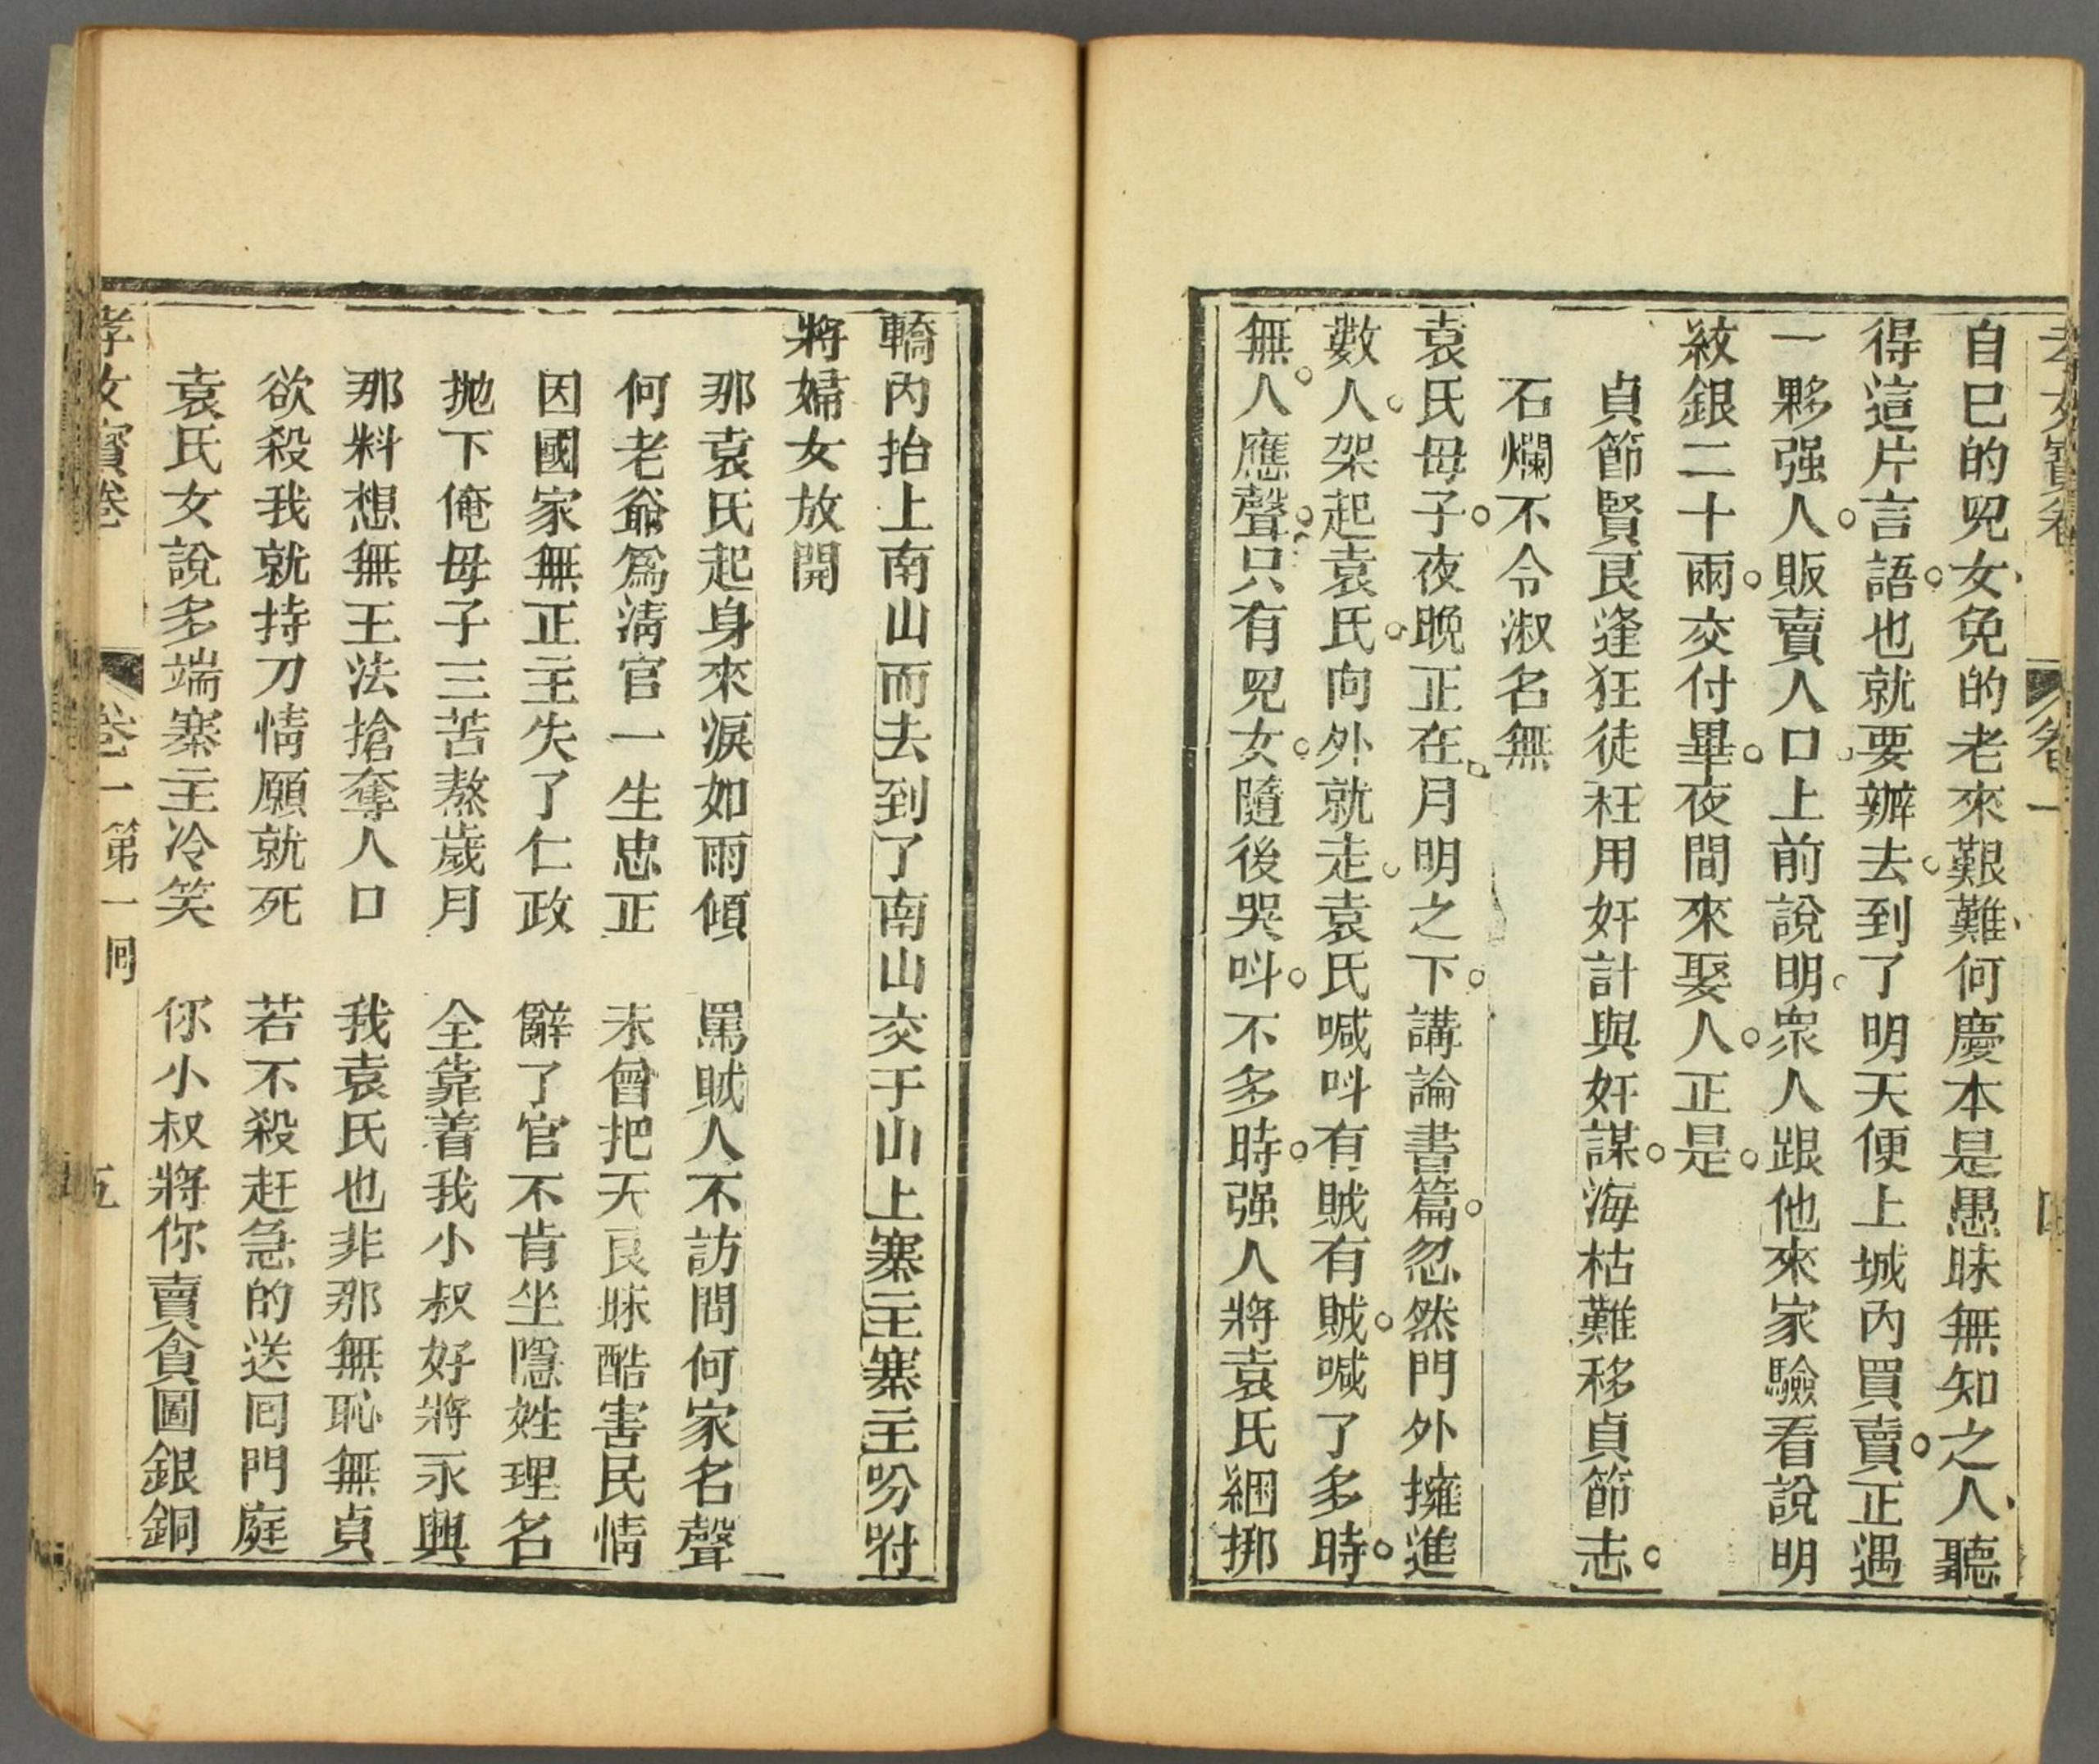 孝女寶卷 卷一
自巳的兒女免的老來艱難何慶本是愚昧無知之人聽
得這片言語也就要辦去到了明天便上城內買賣正遇
一夥强人販賣人口上前說明眾人跟他來家驗看說明
紋銀二十兩交付畢夜間來娶人正是
貞節賢良逢狂徒枉用奸計與奸謀海枯難移貞節志
石爛不令淑名無
袁氏母子夜晚正在月明之下講論書篇忽然門外擁進
數人架起袁氏向外就走袁氏喊呌有賊有賊喊了多時
無人應聲只有兒女隨後哭呌不多時强人將袁氏綑挷
轎內抬上南山而去到了南山交于山上寨主寨主吩咐
將婦女放開
那袁氏起身來淚如雨傾 罵賊人不訪問何家名聲
何老爺爲淸官一生忠正 未曾把天良昧酷害民情
因國家無正主失了仁政 辭了官不肯坐隱姓理名
抛下俺母子三苦熬歲月 全靠着我小叔好將永興
那料想無王法搶奪人口 我袁氏也非那無恥無貞
欲殺我就持刀情願就死 若不殺赶急的送囘門庭
袁氏女說多端寨主冷笑 你小叔將你賣貪圖銀銅
孝女寶卷 卷一第一囘 五